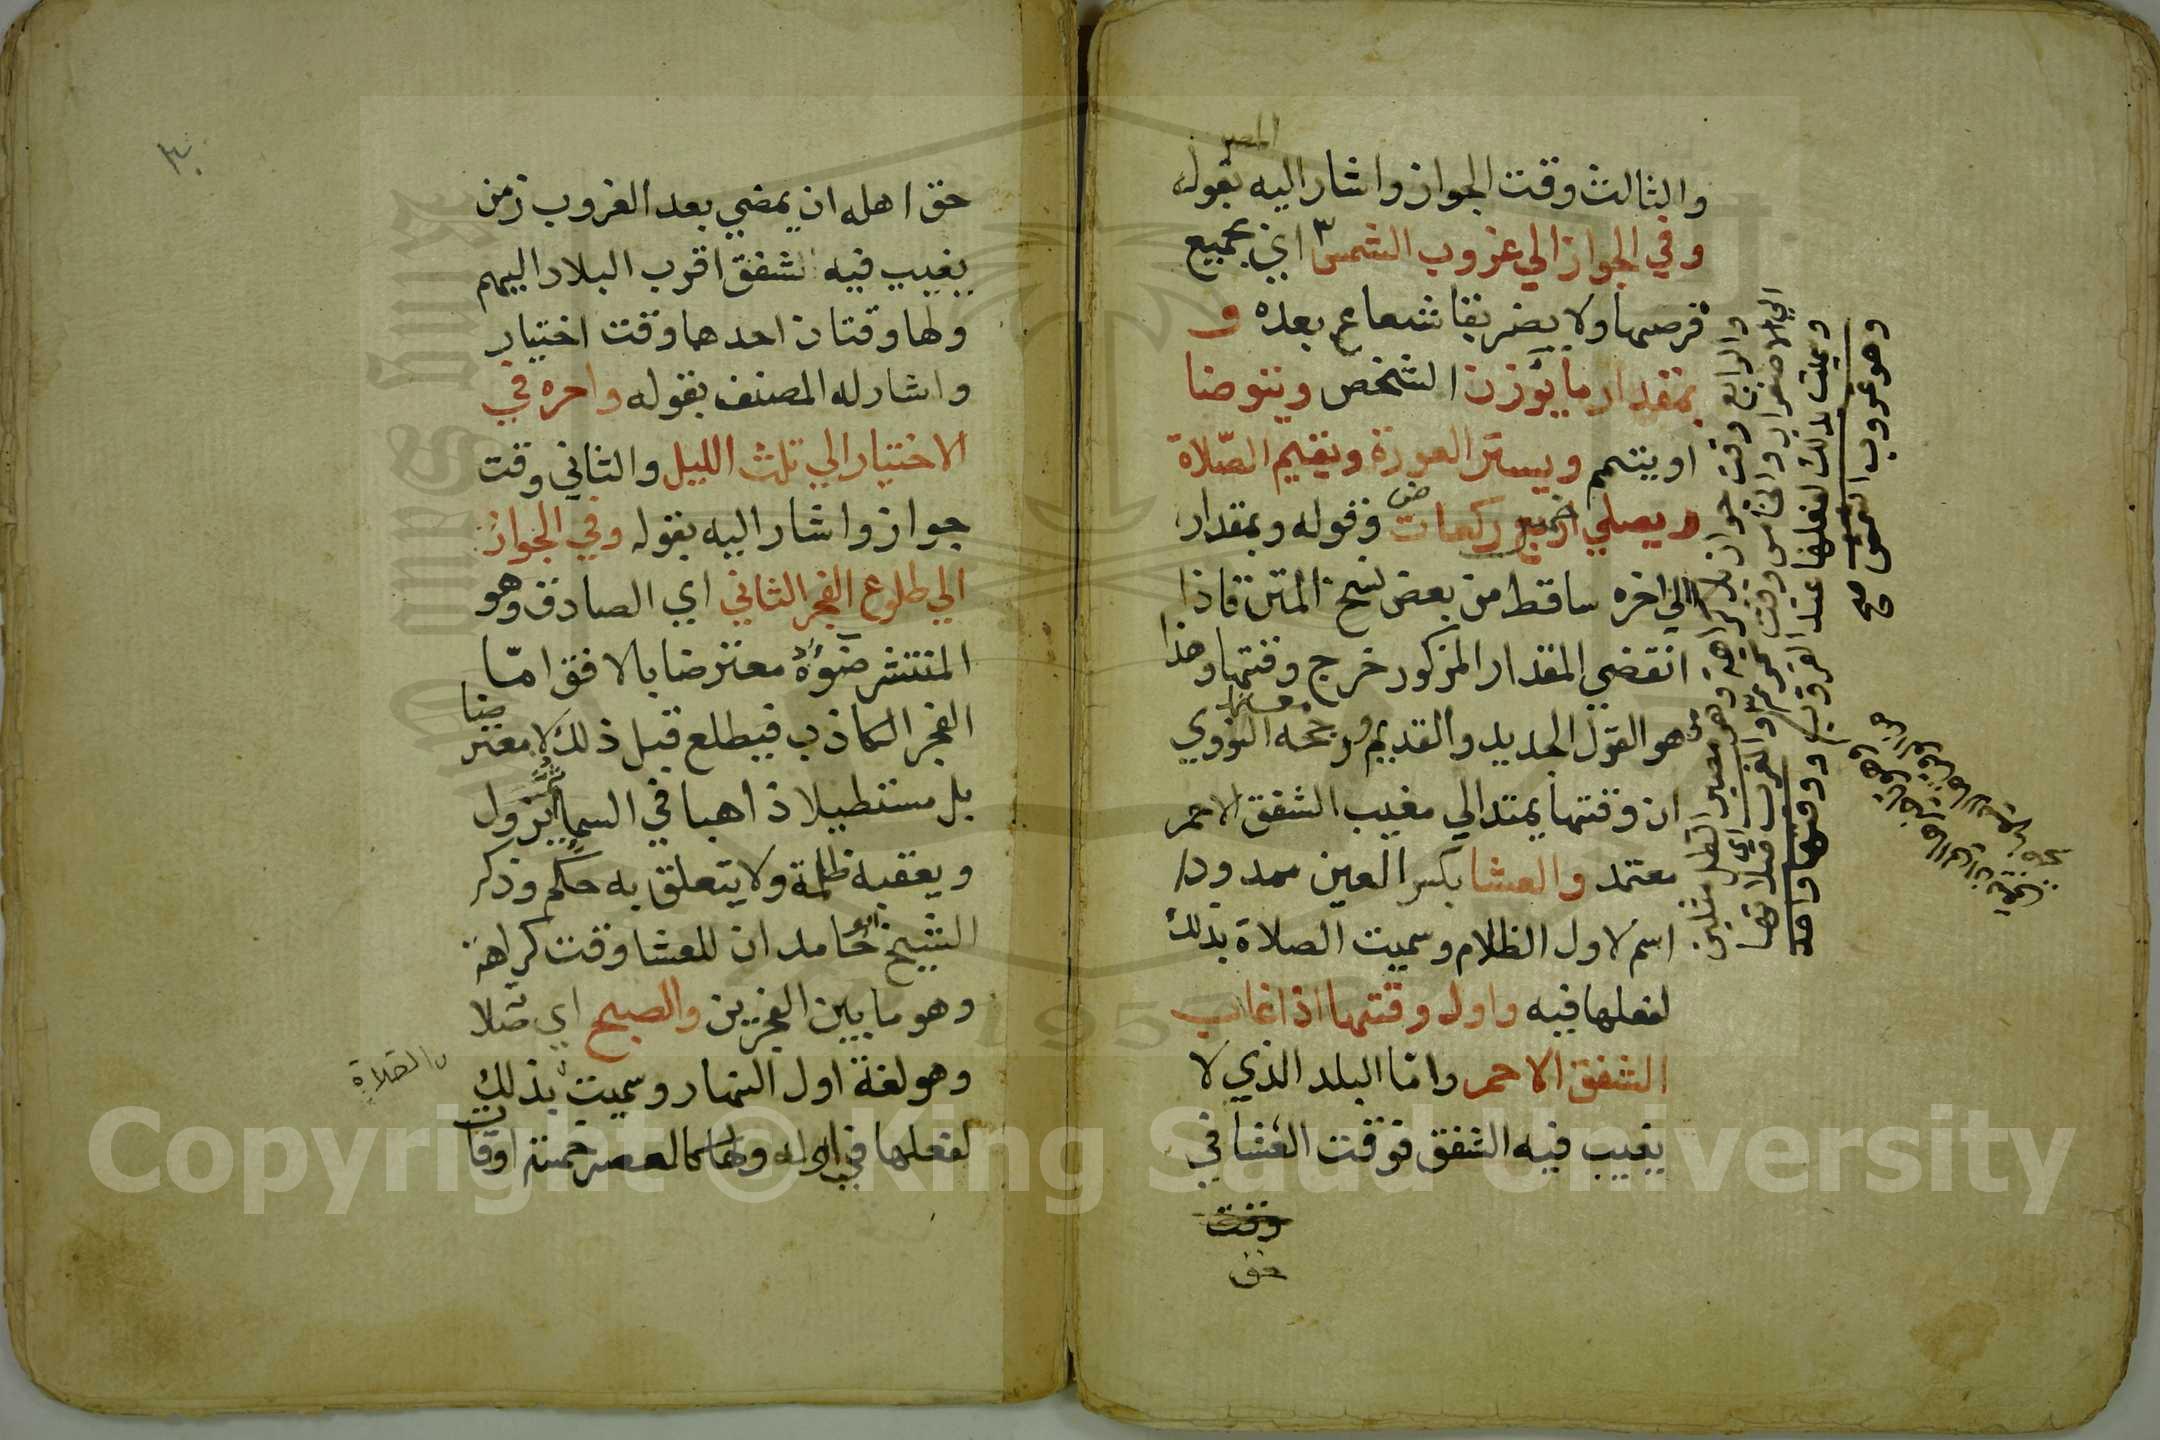 والثالث وقت الجواز واشار اليه بقوله
وفي الجواز الي غروب الشمس اي بجميع
قرصها ولا يضر بقا شعاع بعده و
بمقدار ما يؤذن الشخص ويتوضا
او يتيمم ويستر العورة ويقيم الصلاة
ويصلي خمس ركعات وقوله وبمقدار
الي اخره ساقط من بعض نسخ المتن فاذا
انقضي المقدار المذكور خرج وقتها وهذا
هو القول الجديد والقديم ورجحه النووي
ان وقتها يمتد الي مغيب الشفق الاحمر
معتمد والعشا بكسر العين ممدودا
اسم لاول الظلام وسميت الصلاة بذلك
لفعلها فيه واول وقتها اذا غاب
الشفق الاحمر واما البلد الذي لا
يغيب فيه الشفق فوقت العشا في
وقت
حق
والرابع وقت جواز بلا كراهة وهو من مصير الظل مثلين
الي الاصفرار والخامس وقت تحريم والمغرب اي صلاتها
وسميت بذلك لفعلها عند الغروب ووقتها واحد
وهو غروب الشمس صح
٣٠
حق اهله ان يمضي بعد الغروب زمن
يغيب فيه شفق اقرب البلاد اليهم
ولها وقتان احدهما وقت اختيار
واشار له المصنف بقوله واخره في
الاختيار الي ثلث الليل والثاني وقت
جواز واشار اليه بقوله وفي الجواز
الي طلوع الفجر الثاني اي الصادق وهو
المنتشر ضوؤه معترضا بالافق امّا
الفجر الكاذب فيطلع قبل ذلك لا معترضا
بل مستطيلا ذاهبا في السما ثم يزول
ويعقبه ظلمة ولا يتعلق به حكم وذكر
الشيخ ابو حامد ان للعشا وقت كراهة
وهو ما بين الفجرين والصبح اي صلا
وهو لغة اول النهار وسميت بذلك
لفعلها في اوله ولها كالعصر خمسة اوقات
الصلاة
Copyright © King Saud University
1957